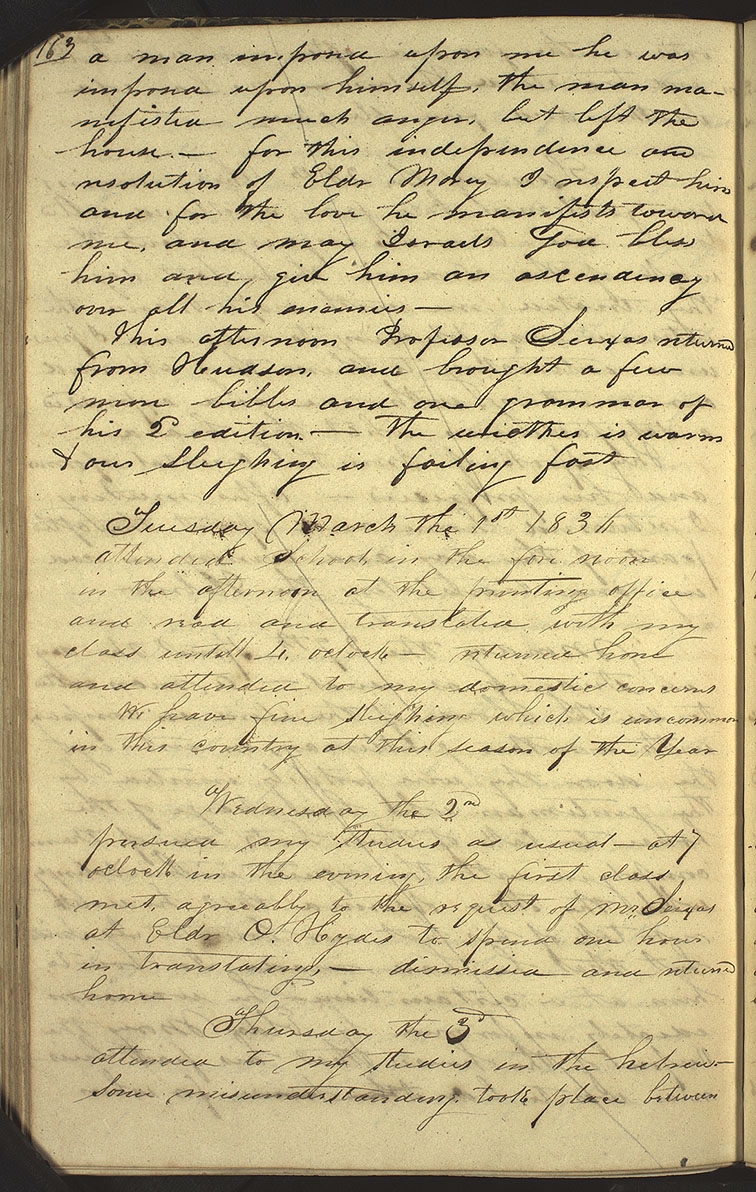 163
a man imposed upon me he was
imposed upon himself, the man ma-
nifisted much anger, but left the
house.— for this independence and
resolution of Eldr Morey I respect him
and for the love he manifists toward
me, and may Israels God bless
him and give him an ascendency
over all his enamies—
This afternoon Professor Seixas returned
from Hudson, and brought a few
more bibles and one grammar of
his 2d edition.— the weather is warm
& our sleighing is failing fast
Tuesday March the 1st 1836
attended School in the fore noon
in the afternoon at the printing office
and read and translated with my
class untill 4, oclock— returned home
and attended to my domestic concerns
We have fine sleighing which is uncommon
in this country at this season of the Year
Wednesday the 2nd
persued my studies as usual— at 7
oclock in the evening, the first class
met, agreeably to the request of Mr. Seixas
at Eldr O. Hydes to spend one hour
in translating,— dismissed and returned
home
Thursday the 3d
attended to my studies in the hebrew—
Some misunderstanding, took place between